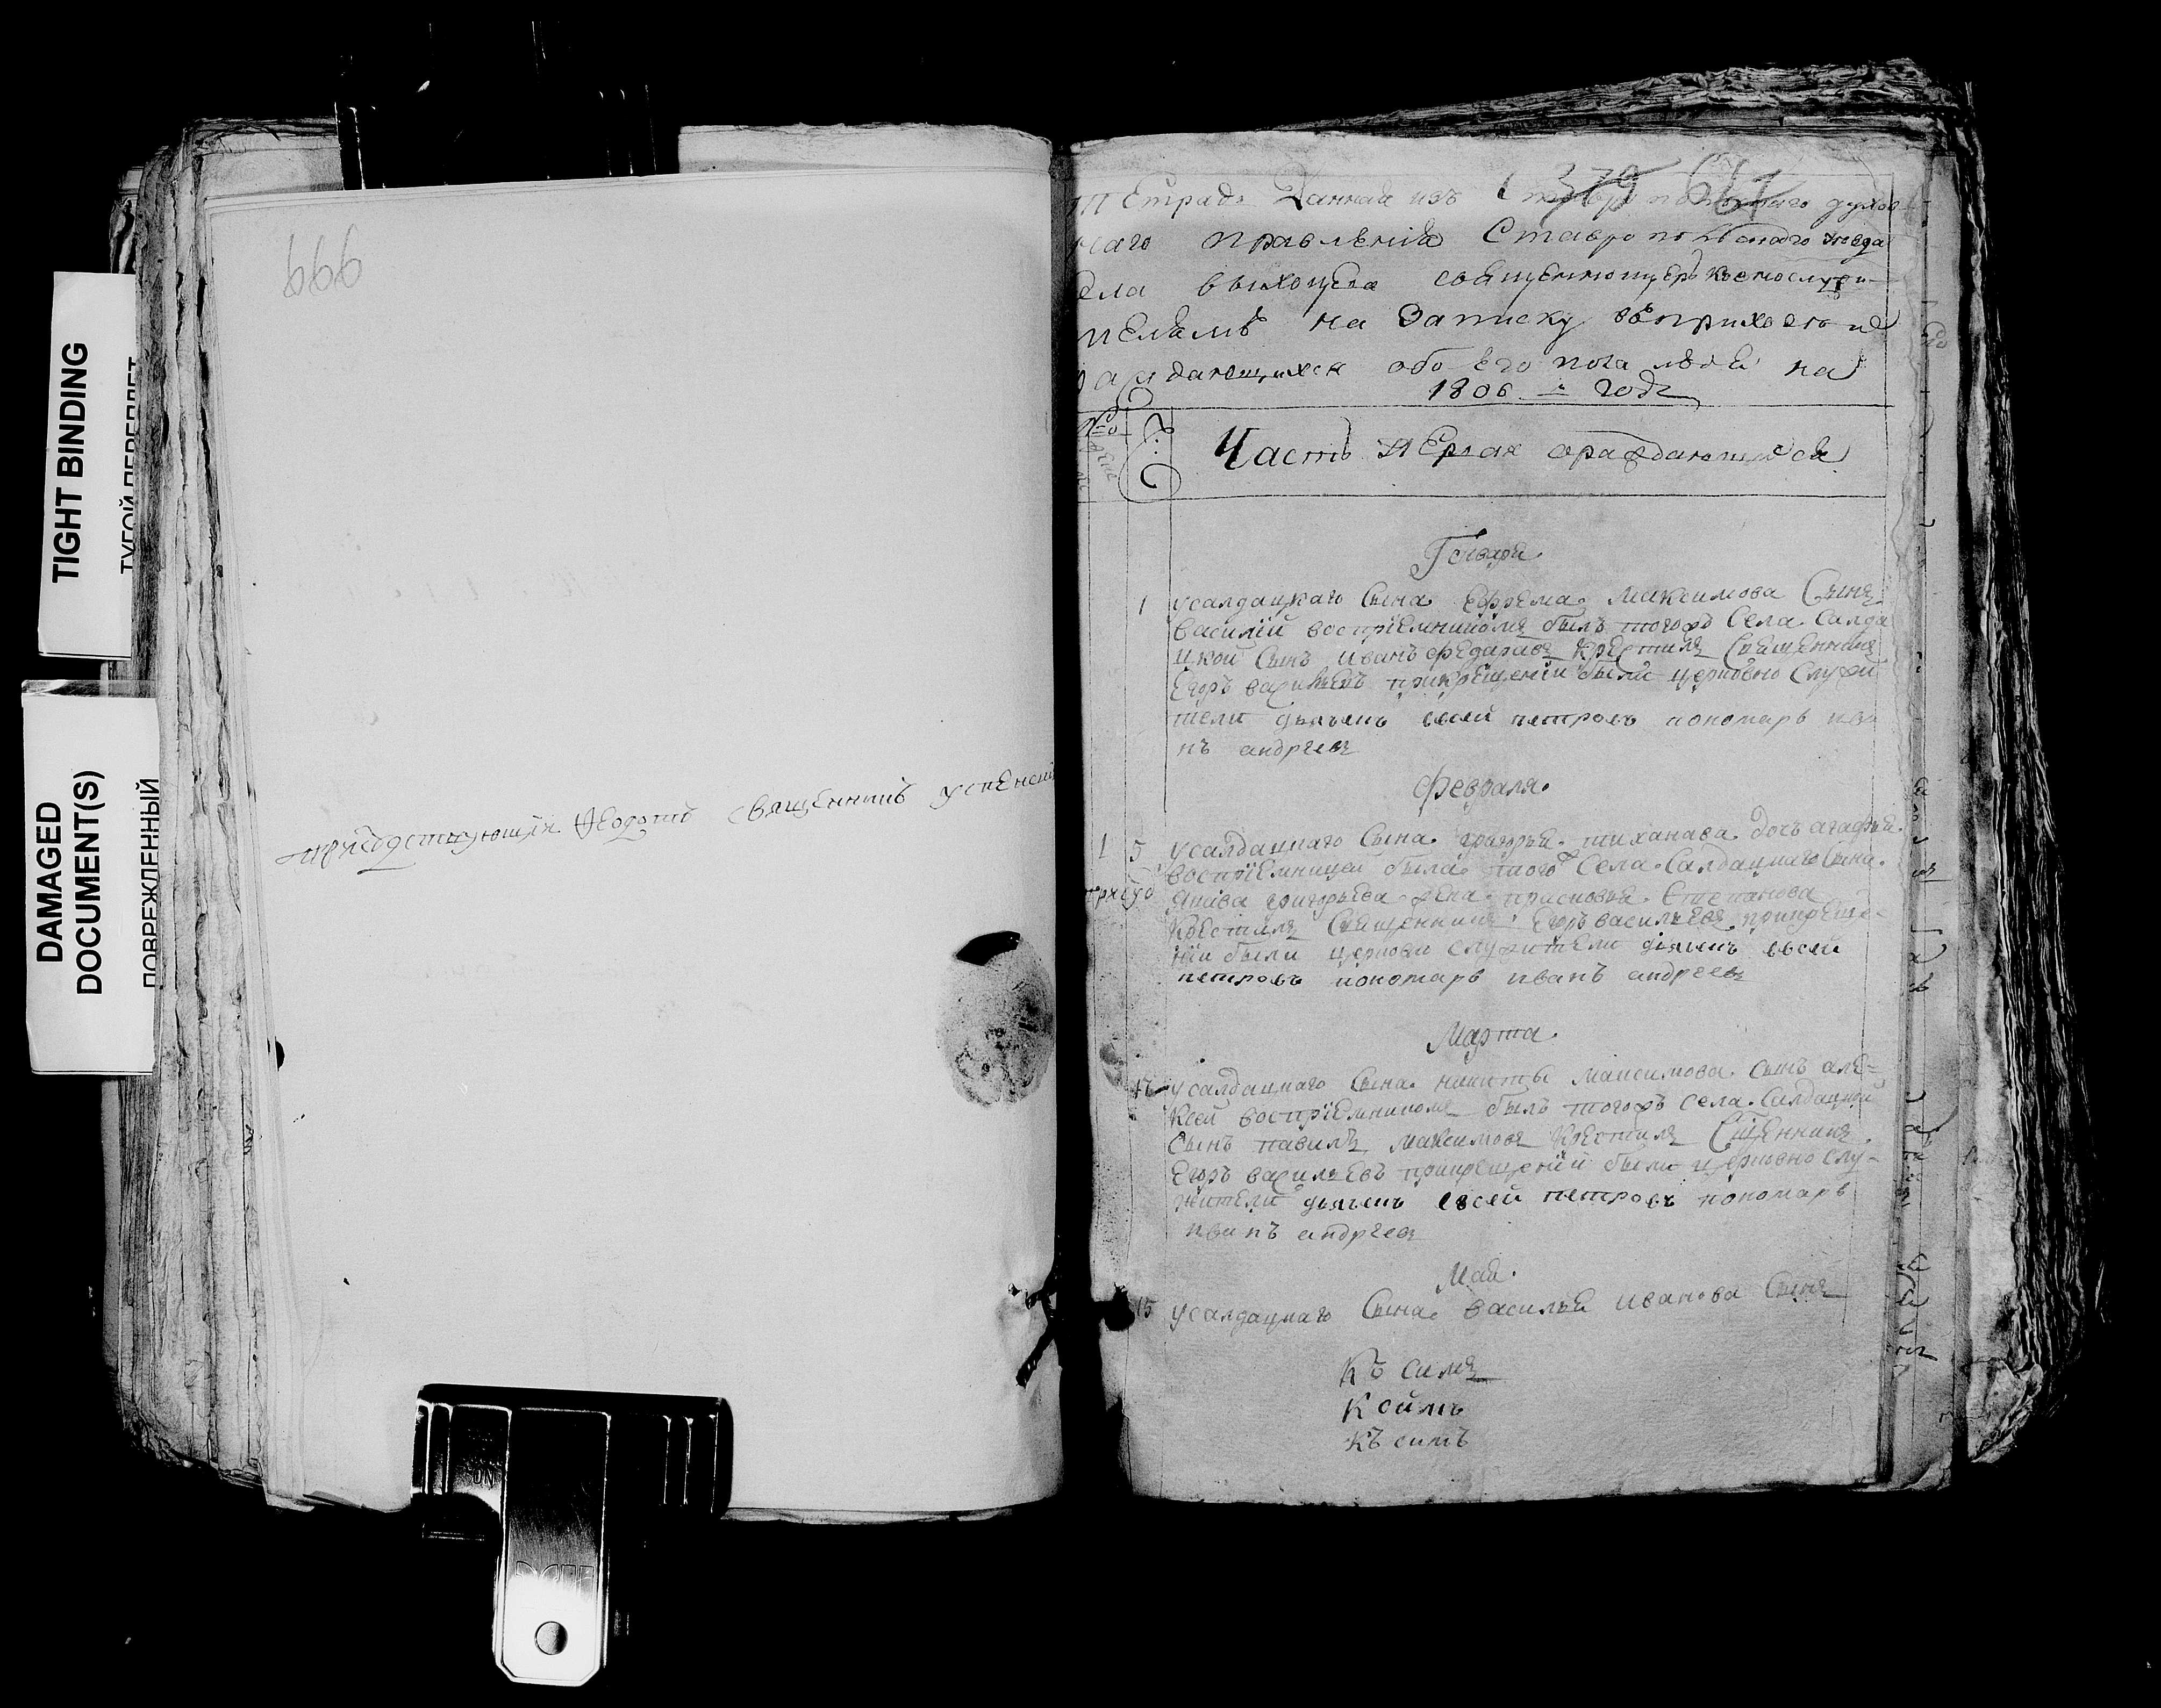 TIGHT BINDING
ТУГОЙ ПЕРЕПЛЕТ
DAMAGED
DOCUMENT(S)
ПОВРЕЖДЕННЫЙ
666
присудствующiи Ѳеодотъ священникъ успенскiи
379 667
тетрадь Данная изъ духов
наго правленiя Ставропольскаго уезда
села выхоцева священноцерковнослужи
телемъ на Записку въприходе
раждающихся обоего пола людеи на
1806 годъ
№
Часть перьвая ораждающихся
Генваря
1 усалдацкаго Сына Ефрема Максимова Сынъ
Василiй воспрiемникомъ былъ тогожъ Села Салда
цкой Сынъ Иванъ федаравъ Крестилъ Священникъ
Егоръ васильевъ прикрещенiи были церковно Служи
тели дьячекъ евсей петровъ пономарь ива
нъ андреевъ
февраля
1 5 усалдацкаго Сына григорья тиханава дочь агафья
воспрiемницей была того Села Салдацкаго Сына
Якава григорьева жена прасковья Степанова
Крестилъ Священникъ Егоръ васильевъ прикреще
нiи были церковно служители дiячекъ евсей
петровъ пономарь иванъ андреевъ
Марта
17 усалдацкаго Сына никиты максимова сынъ але=
ксей воспрiемникомъ былъ тогожъ села Салдацкой
Сынъ павилъ максимовъ Крестилъ Сщенникъ
Егоръ васильевъ прикрещенiи были церковно слу-
жители дьячекъ евсей петровъ пономарь
иванъ андреевъ
Мая
15 усалдацкаго Сына василья иванова Сынъ
Къ симъ
К сймъ
Къ симъ